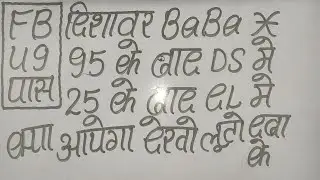 FB दिशावर BaBa *
49 95 के बाद DS मे
पास 25 के बाद GL मे
क्या आयेगा देखो लूटो दबा
के